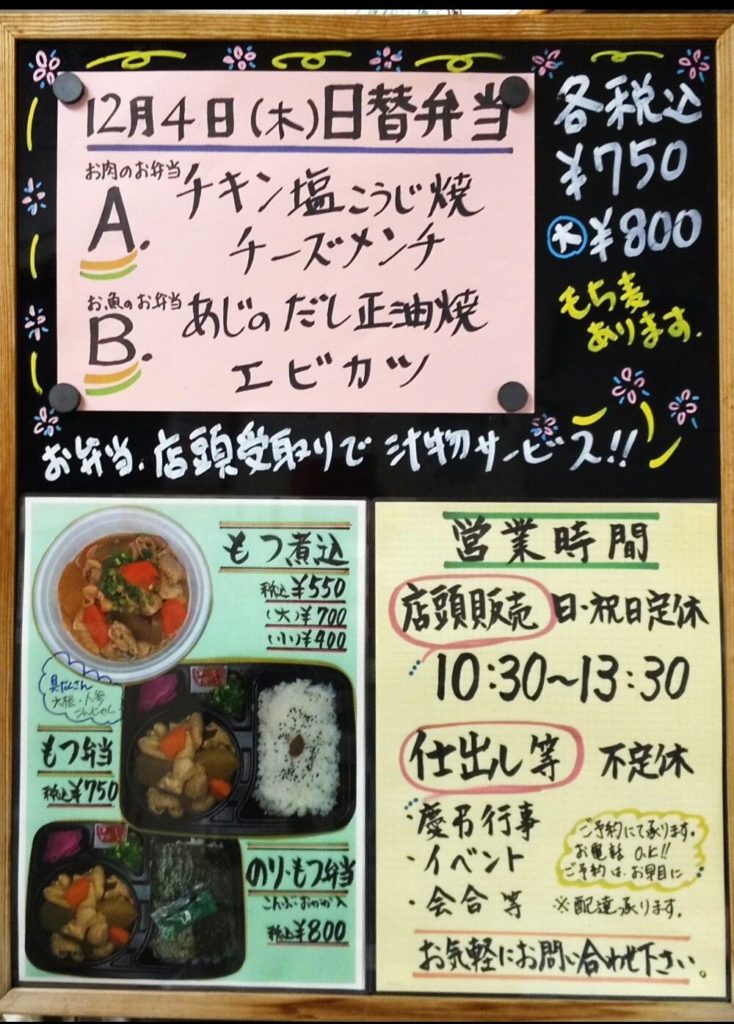 12月4日(木)日替弁当
お肉のお弁当
A.
チキン塩こうじ焼
チーズメンチ
お魚のお弁当
B.
あじのだし正油焼
エビカツ
各税込
¥750
大¥800
もち麦
あります.
お弁当、店頭受取りで汁物サービス!!
もつ煮込
税込¥550
(大)¥700
(小)¥400
具だくさん
大根・人参
こんにゃく
もつ弁当
税込¥750
のり・もつ弁当
こんぶ・おかか入
税込¥800
営業時間
店頭販売 日・祝日定休
10:30~13:30
仕出し等 不定休
・慶弔行事
・イベント
・会合等
ご予約にて承ります.
お電話OK!!
ご予約はお早目に
※配達承ります.
お気軽にお問い合わせ下さい。